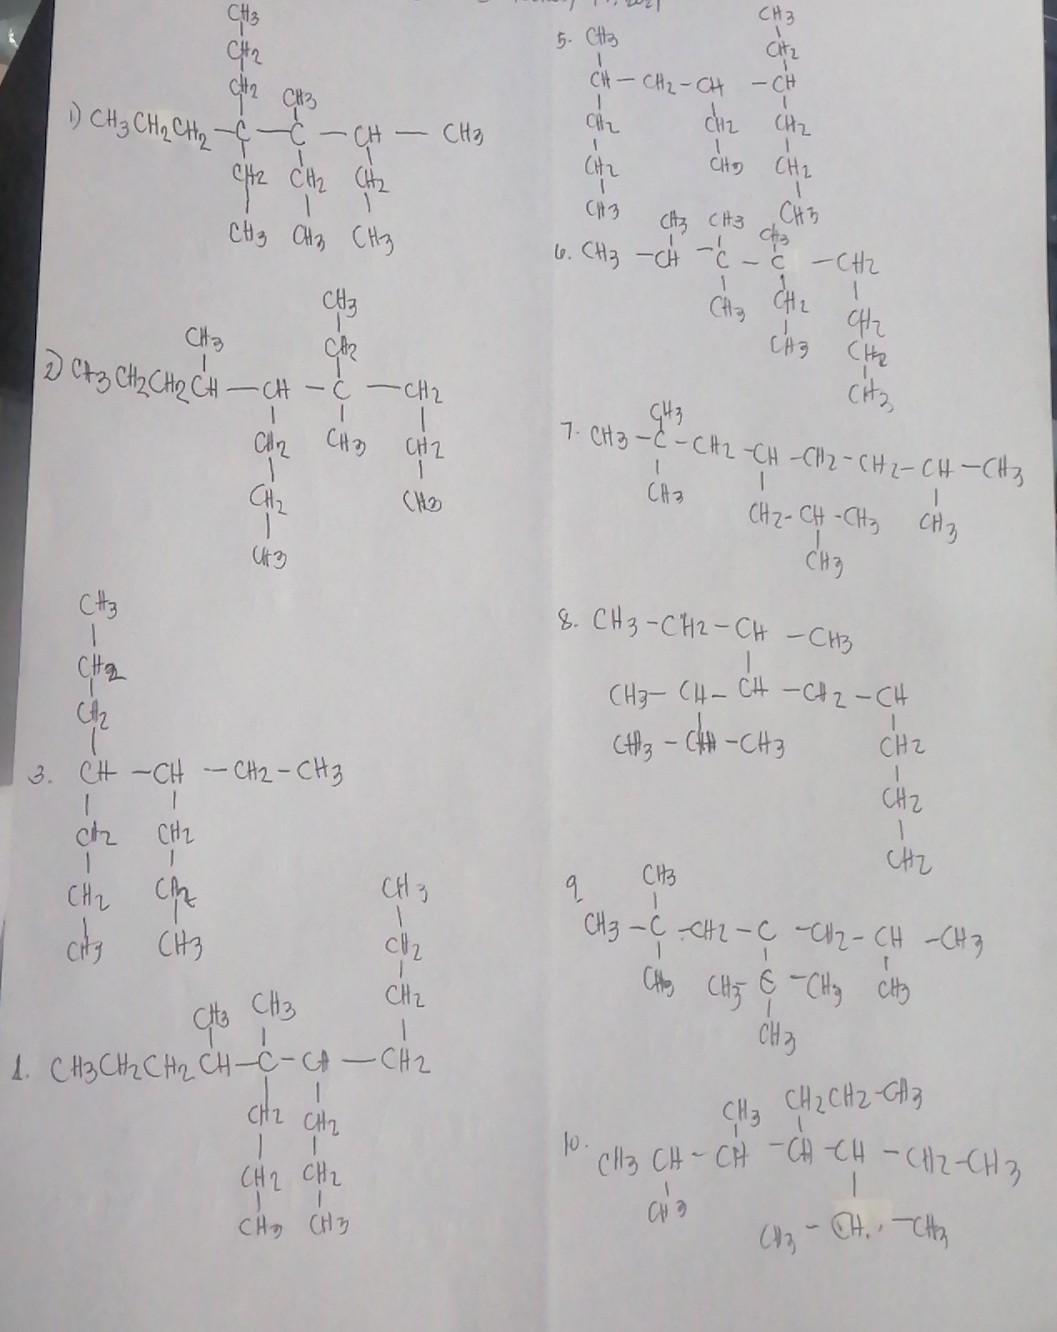 CH3
CH2
CH2 CH3
1) CH3CH2CH2 - C - C - CH - CH3
CH2 CH2 CH2
CH3 CH3 CH3
CH3
CH3 CH2
2) CH3CH2CH2CH - CH - C - CH2
CH2 CH3 CH2
CH2 CH3
CH3
CH3
CH2
CH2
3. CH - CH - CH2 - CH3
CH2 CH2
CH2 CH2
CH3 CH3
CH3
CH2
CH3 CH3 CH2
1. CH3CH2CH2CH - C - CH - CH2
CH2 CH2
CH2 CH2
CH3 CH3
CH3
5. CH3 CH2
CH - CH2 - CH - CH
CH2 CH2 CH2
CH2 CH3 CH2
CH3 CH3
CH3 CH3 CH3
6. CH3 - CH - C - C - CH2
CH3 CH2 CH2
CH3 CH2
CH3
CH3
7. CH3 - C - CH2 - CH - CH2 - CH2 - CH - CH3
CH3 CH2 - CH - CH3 CH3
CH3
8. CH3 - CH2 - CH - CH3
CH3 - CH - CH - CH2 - CH
CH3 - CH - CH3 CH2
CH2
CH2
CH3
9
CH3 - C - CH2 - C - CH2 - CH - CH3
CH3 CH3 - C - CH3 CH3
CH3
CH3 CH2CH2 - CH3
10. CH3 CH - CH - CH - CH - CH2 - CH3
CH3
CH3 - CH - CH3